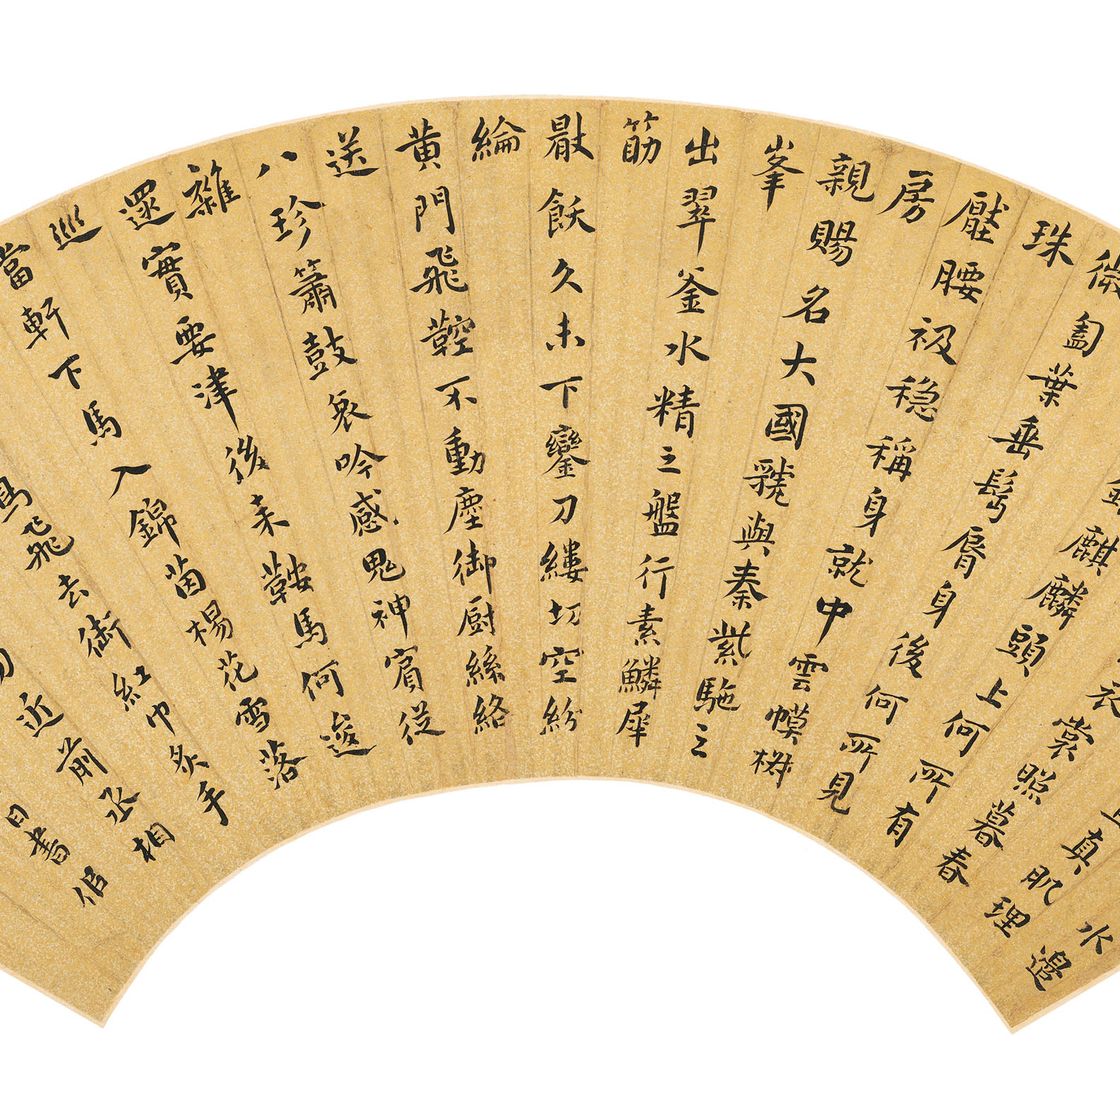 水邊
真肌理
衣裳照暮春
麒麟頭上何所有
微㔩葉垂鬢脣身後何所見
珠
壓腰衱穩稱身就中雲幙椒
房
親賜名大國虢與秦紫駞之
峯
出翠釜水精之盤行素鱗犀
筯
厭飫久未下鑾刀縷切空紛
綸
黃門飛鞚不動塵御廚絲絡
送
八珍簫鼓哀吟感鬼神賓從
雜
遝實要津後来鞍馬何逡
巡
當軒下馬入錦茵楊花雪落
鳥飛去銜紅巾炙手
近前丞相
日書